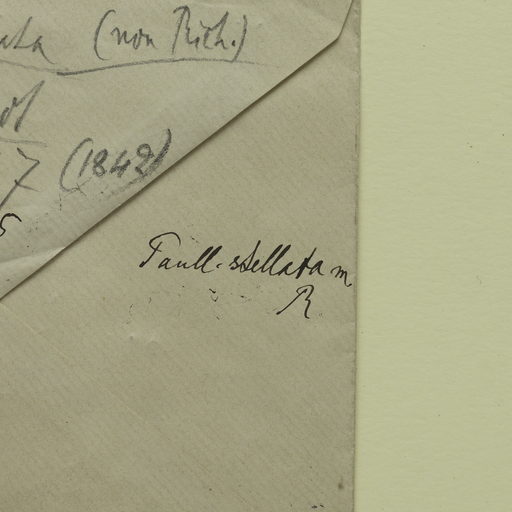 ata (non Rich.)
7 (1842)
5
Paull. stellata m
R